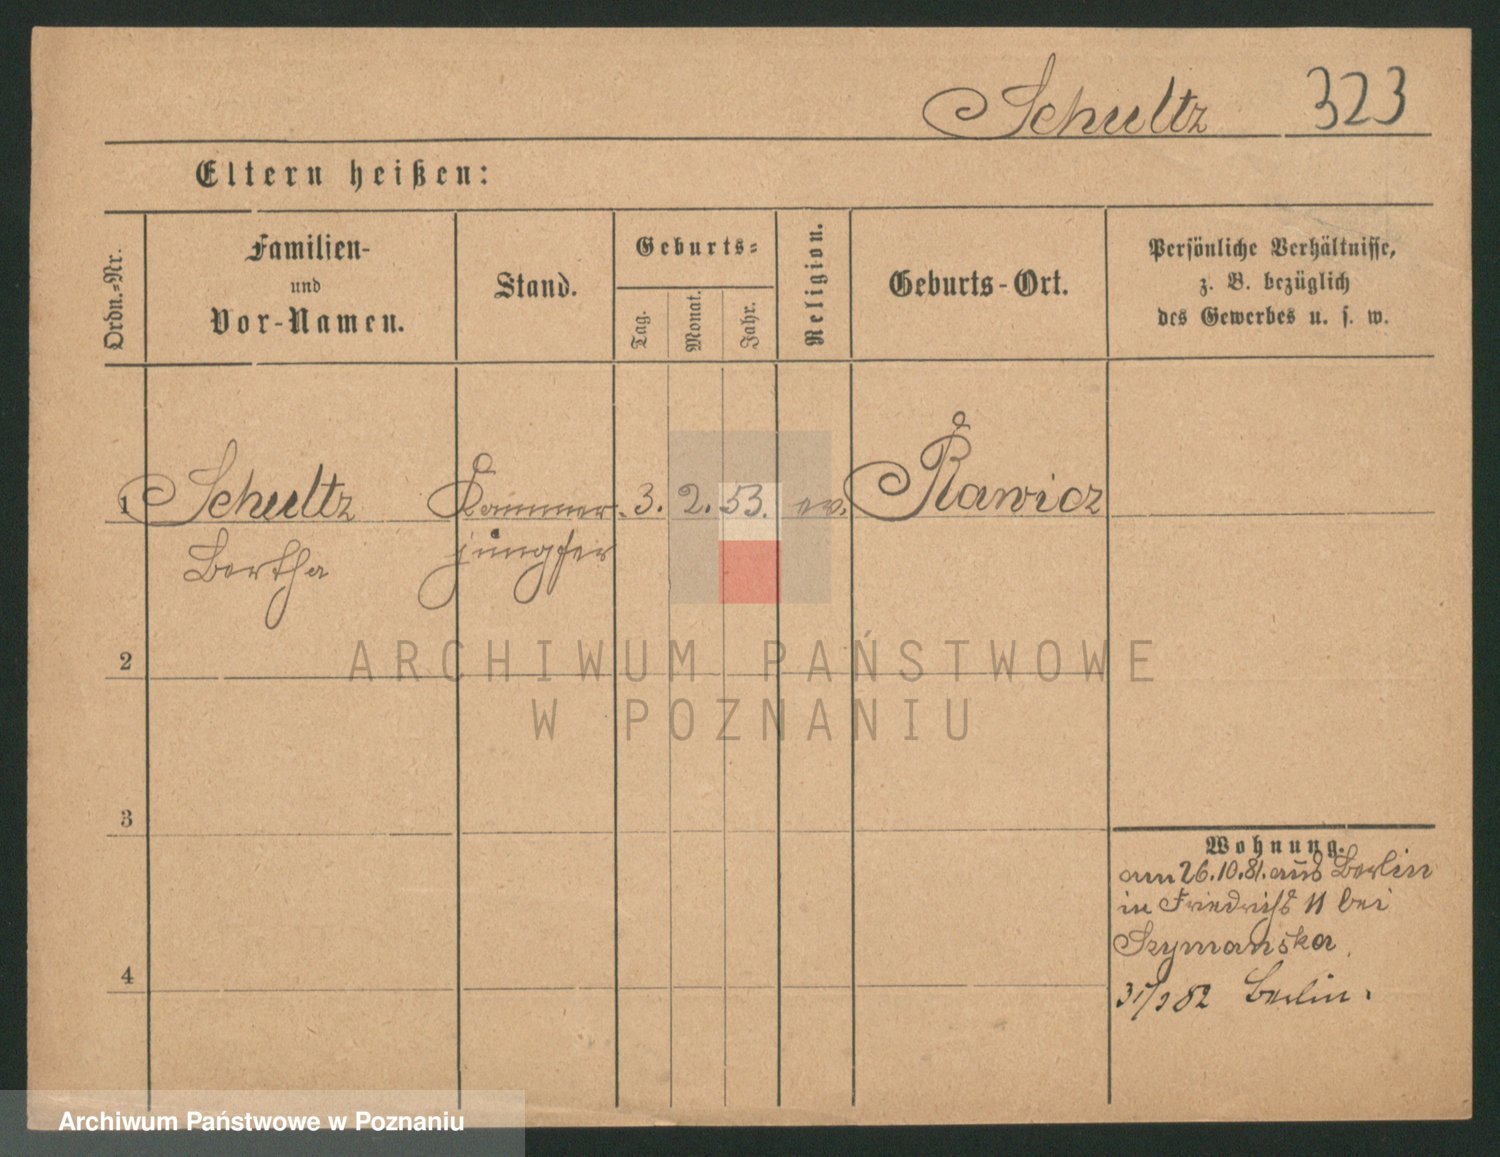 Schultz 323
Eltern heißen:
Ordn.-Nr.
Familien-
und
Vor-Namen.
Stand.
Geburts-
Tag.
Monat.
Jahr.
Religion.
Geburts-Ort.
Persönliche Verhältnisse,
z. B. bezüglich
des Gewerbes u. s. w.
1 Schultz Kammer- 3. 2. 53. ev. Rawicz
Bertha jungfer
2
ARCHIWUM PAŃSTWOWE
W POZNANIU
3
Wohnung.
am 26.10.81. aus Berlin
in Friedrichs 11 bei
Szymanska.
4
82 Berlin.
Archiwum Państwowe w Poznaniu